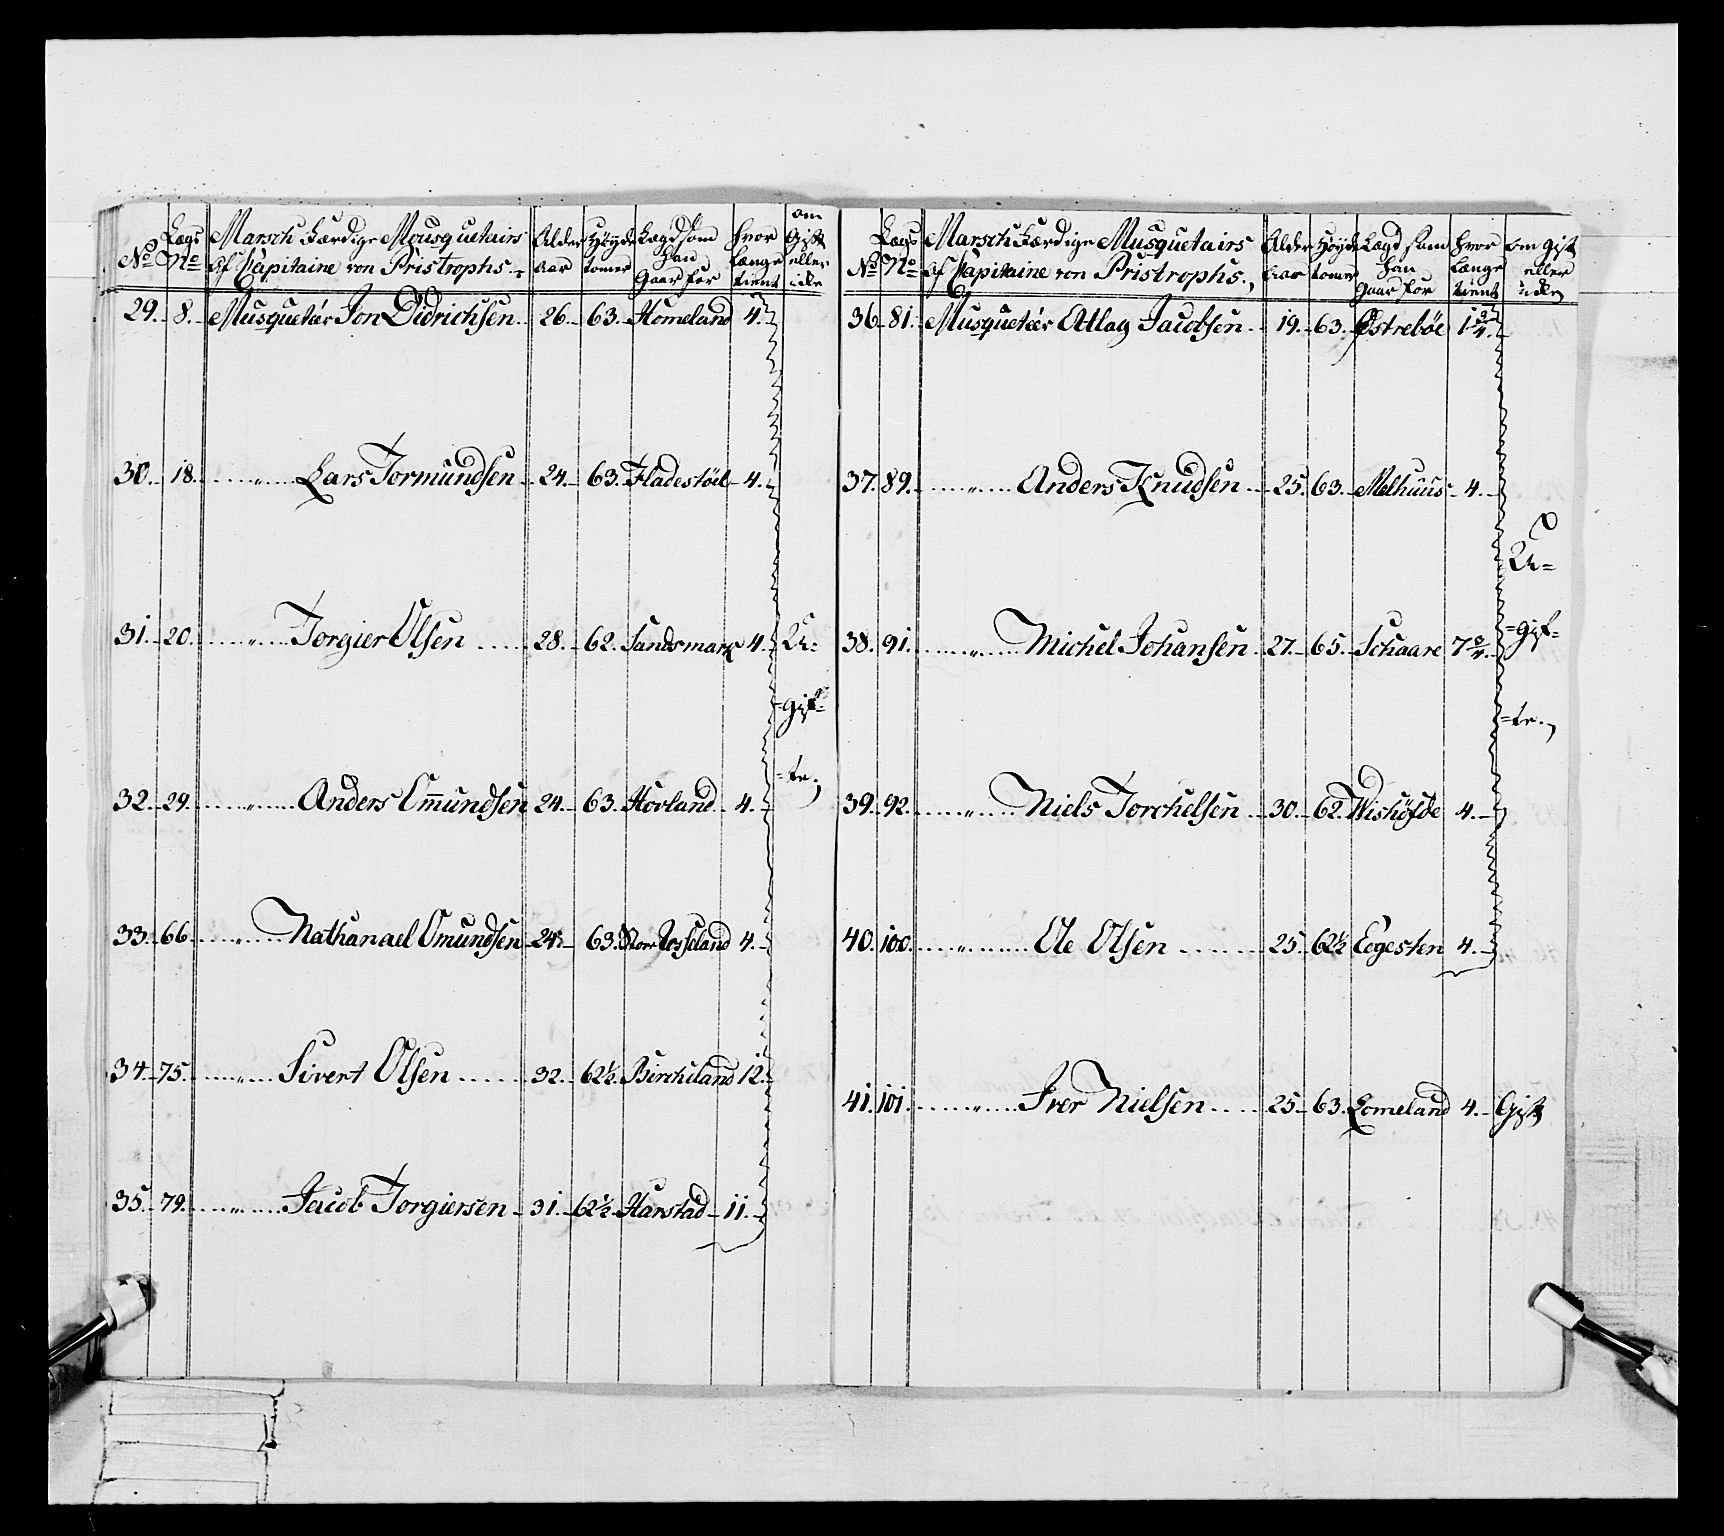 No Lægs No Marsch Færdige Mousquetairs af Capitaine von Pristrophs. Alder aar Höyde tomer Lægd som han Gaar for hvor længe tient om Gift eller icke
29. 8. Musquetér Jon Didrichsen 26. 63. Homeland 4.
30. 18. " Lars Tormundsen 24. 63. Fladestöel 4.
31. 20. " Torgier Olsen 28. 62. Sandsmark 4. U=
=gif=
=te.
32. 29. " Anders Omundsen 24. 63. Hovland 4.
33. 66. " Nathanael Omundsen 24. 63. 4.
34. 75. " Sivert Olsen 32. 62½. Bircheland 12.
35. 79. " Jacob Torgiersen 31. 62½. Harstad 11.
No Lægs No Marsch Færdige Musquetairs af Capitaine von Pristrophs. Alder aar Höyde tomer Lægd som han Gaar for hvor længe tient om gift eller icke
36. 81. Musquetér Atlag Jacobsen 19. 63. Østreböe 1¾.
37. 89. " Anders Knudsen 25. 63. Melhuus 4.
U=
38. 91. " Michel Johansen 27. 65. Schaare =gif=
=te.
39. 92. " Niels Torchelsen 30. 62. 4.
40. 100. " Ole Olsen 25. 62½ Eegesten 4.
41. 101. " Iver Nielsen 25. 63. Lomeland 4. Gift